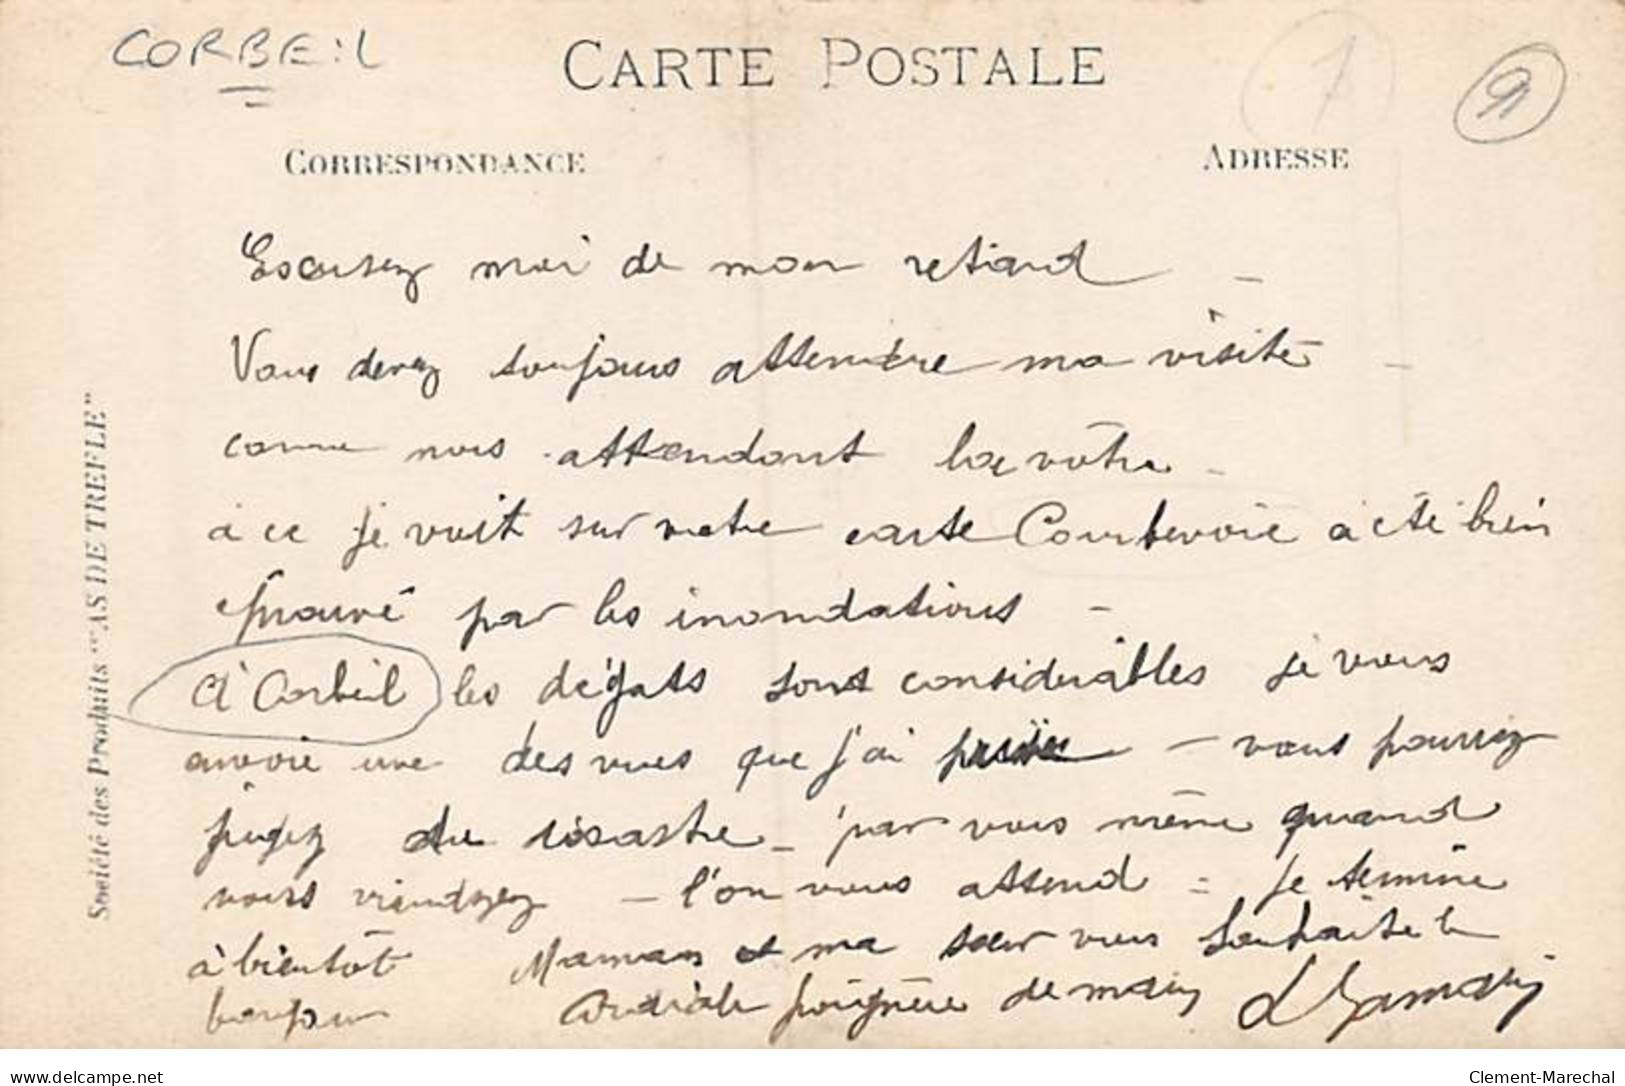 CORBEIL
CARTE POSTALE
9
CORRESPONDANCE
ADRESSE
Excusez moi de mon retard -
Vous devez toujours attendre ma visite -
comme nous attendont la vôtre -
à ce je voit sur votre carte Courbevoie a été bien
éprouvé par les inondations -
à Corbeil les dégats sont considérables je vous
envoie une des vues que j'ai prise - vous pourriez
jugez du désastre - par vous même quand
vous viendrez - l'on vous attend = je termine
à bientôt Maman et ma sœur vous souhaite le
bonjour Cordiale poignée de main
Société des Produits "AS DE TREFLE"
delcampe.net
Clement-Marechal